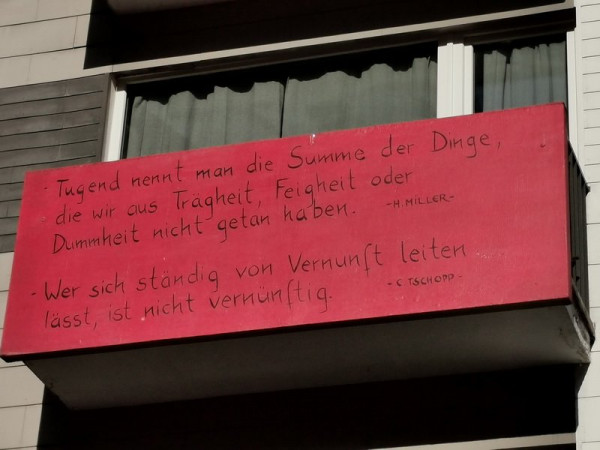 - Tugend nennt man die Summe der Dinge,
die wir aus Trägheit, Feigheit oder
Dummheit nicht getan haben. -H. MILLER-
- Wer sich ständig von Vernunft leiten
lässt, ist nicht vernünftig. -C. TSCHOPP-